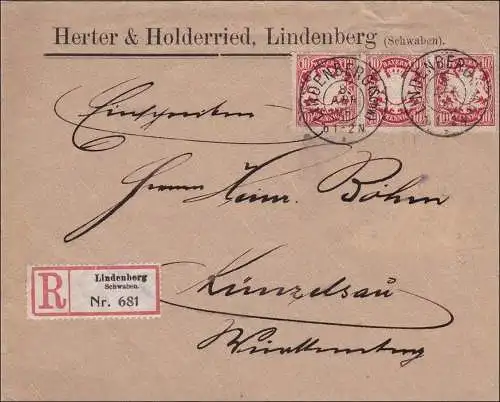 Herter & Holderried, Lindenberg (Schwaben).
10 BAYERN 10
LINDENBERG (SCHW.)
8.
APR
1-2 N
Einschreiben
Herrn Heinr. Böhm
Künzelsau
Württemberg
R
Lindenberg
Schwaben.
Nr. 681